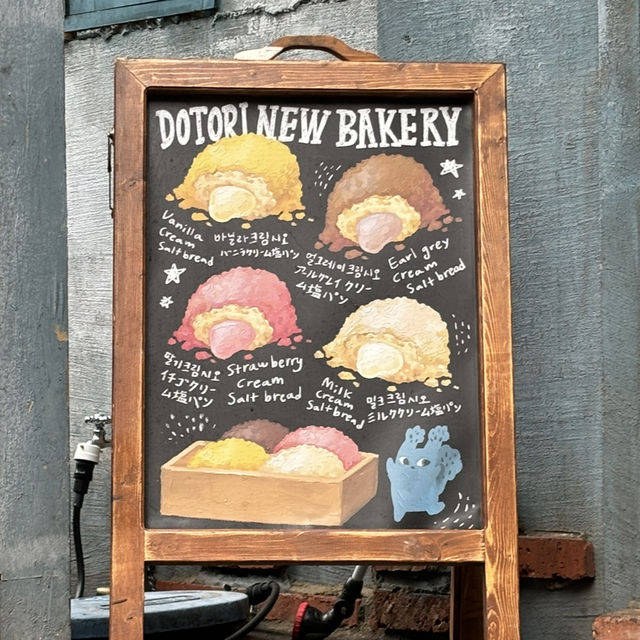 DOTORI NEW BAKERY
Vanilla
Cream
Salt bread
바닐라크림시오
バニラクリーム塩パン
얼그레이크림시오
アールグレイクリー
ム塩パン
Earl grey
Cream
Salt bread
딸기크림시오
イチゴクリー
ム塩パン
Strawberry
Cream
Salt bread
Milk
Cream
Salt bread
밀크크림시오
ミルククリーム塩パン